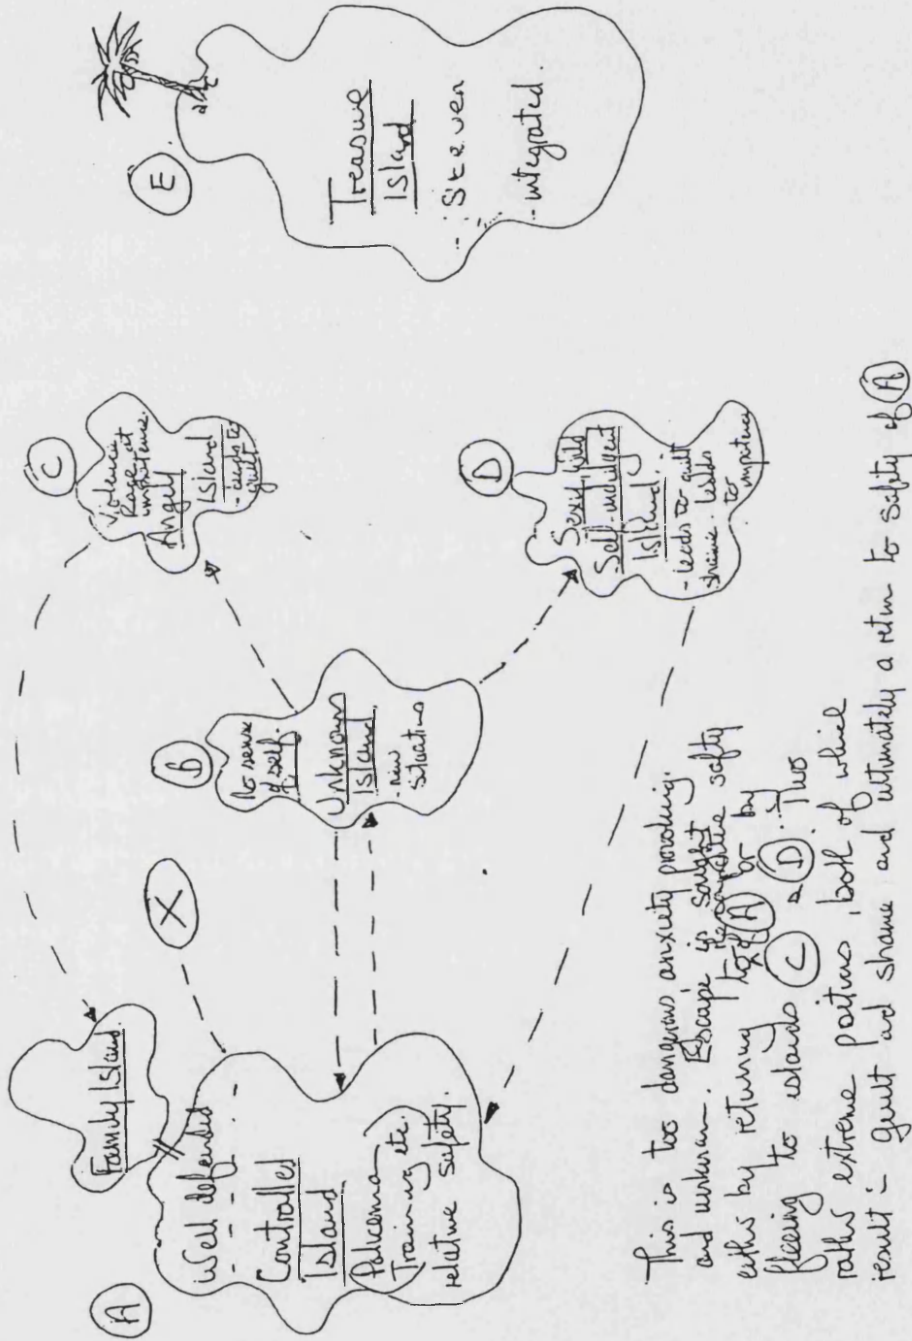 A
Family Island.
Well defended
Controlled
Island
Policeman
Training etc.
relative safety.
X
B
No sense
of self.
Unknown
Island
- new
situations
C
Violence
Rage at
impotence.
Anger
Island
- leads to
guilt
D
Sexy, Wild
Self-indulgent
Island
- leads to guilt
shame - leads
to impotence
E
Treasure
Island
- Steven
- integrated.
This is too dangerous anxiety provoking.
and unknown. Escape is sought
either by returning to the comparative safety
of A or by
fleeing to islands C or D. Two
rather extreme positions, both of which
result in guilt and shame and ultimately a return to safety of A